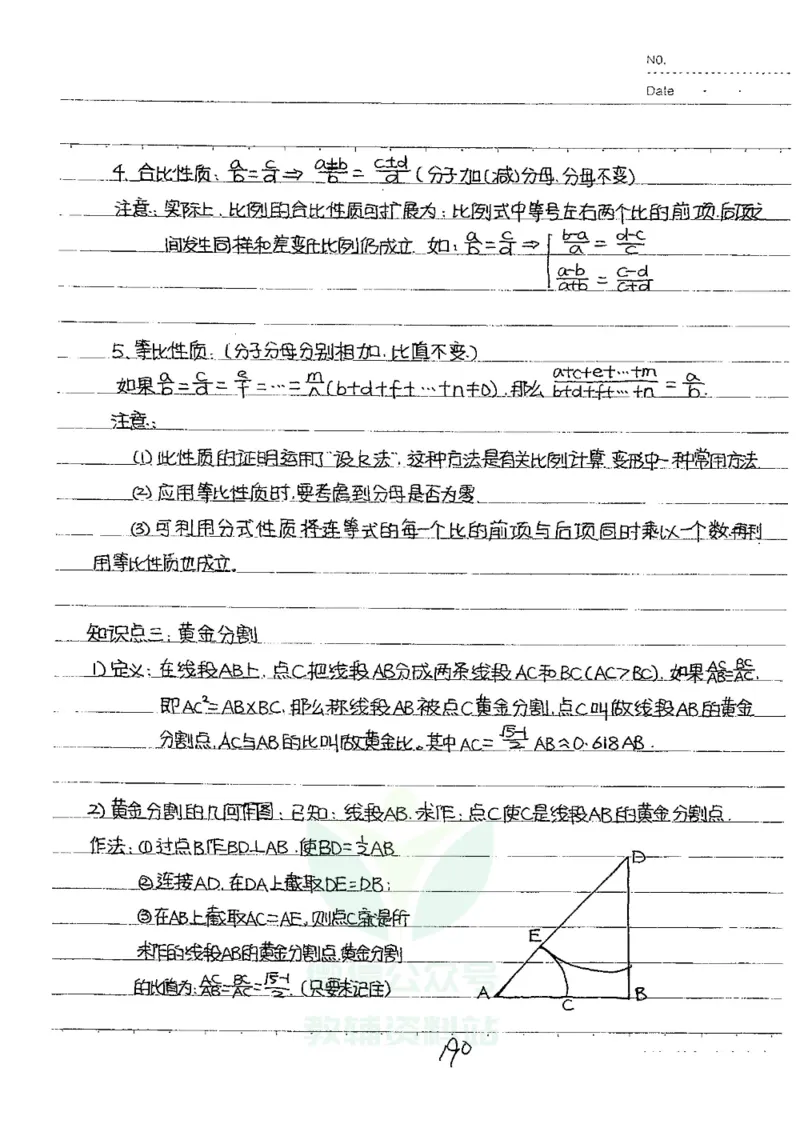 NO.
Date · ·
4、合比性质：a/b=c/d⇒(a±b)/b=(c±d)/d（分子加(减)分母，分母不变）
注意：实际上，比例的合比性质可扩展为：比例式中等号左右两个比的前项，后项之
间发生同样和差变化比例仍成立. 如：a/b=c/d⇒{(b-a)/a=(d-c)/c
(a-b)/(a+b)=(c-d)/(c+d)
5、等比性质：（分子分母分别相加，比值不变.）
如果a/b=c/d=e/f=…=m/n(b+d+f+…+n≠0)，那么(a+c+e+…+m)/(b+d+f+…+n)=a/b.
注意：
(1)此性质的证明运用了“设k法”，这种方法是有关比例计算，变形中一种常用方法
(2)应用等比性质时，要考虑到分母是否为零
(3)可利用分式性质将连等式的每一个比的前项与后项同时乘以一个数，再利
用等比性质也成立。
知识点三：黄金分割
1)定义：在线段AB上，点C把线段AB分成两条线段AC和BC(AC>BC)，如果AC/AB=BC/AC，
即AC²=AB×BC，那么称线段AB被点C黄金分割，点C叫做线段AB的黄金
分割点，AC与AB的比叫做黄金比。其中AC=(√5-1)/2 AB≈0.618AB.
2)黄金分割的几何作图：已知：线段AB.求作：点C使C是线段AB的黄金分割点.
作法：①过点B作BD⊥AB，使BD=½AB
②连接AD，在DA上截取DE=DB；
③在AB上截取AC=AE，则点C就是所
求作的线段AB的黄金分割点.黄金分割
的比值为：AC/AB=BC/AC=(√5-1)/2.（只要求记住）
D
E
A
C
B
公众号
教辅资料站
190